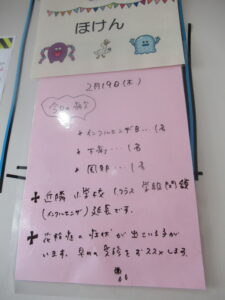 ほけん
2月19日(木)
今日の病欠
インフルエンザB…1名
下痢…1名
風邪…1名
✚ 近隣 小学校 1クラス 学級閉鎖
(インフルエンザ)延長です。
✚ 花粉症の症状が出ている方が
います。早めの受診をおススメします。